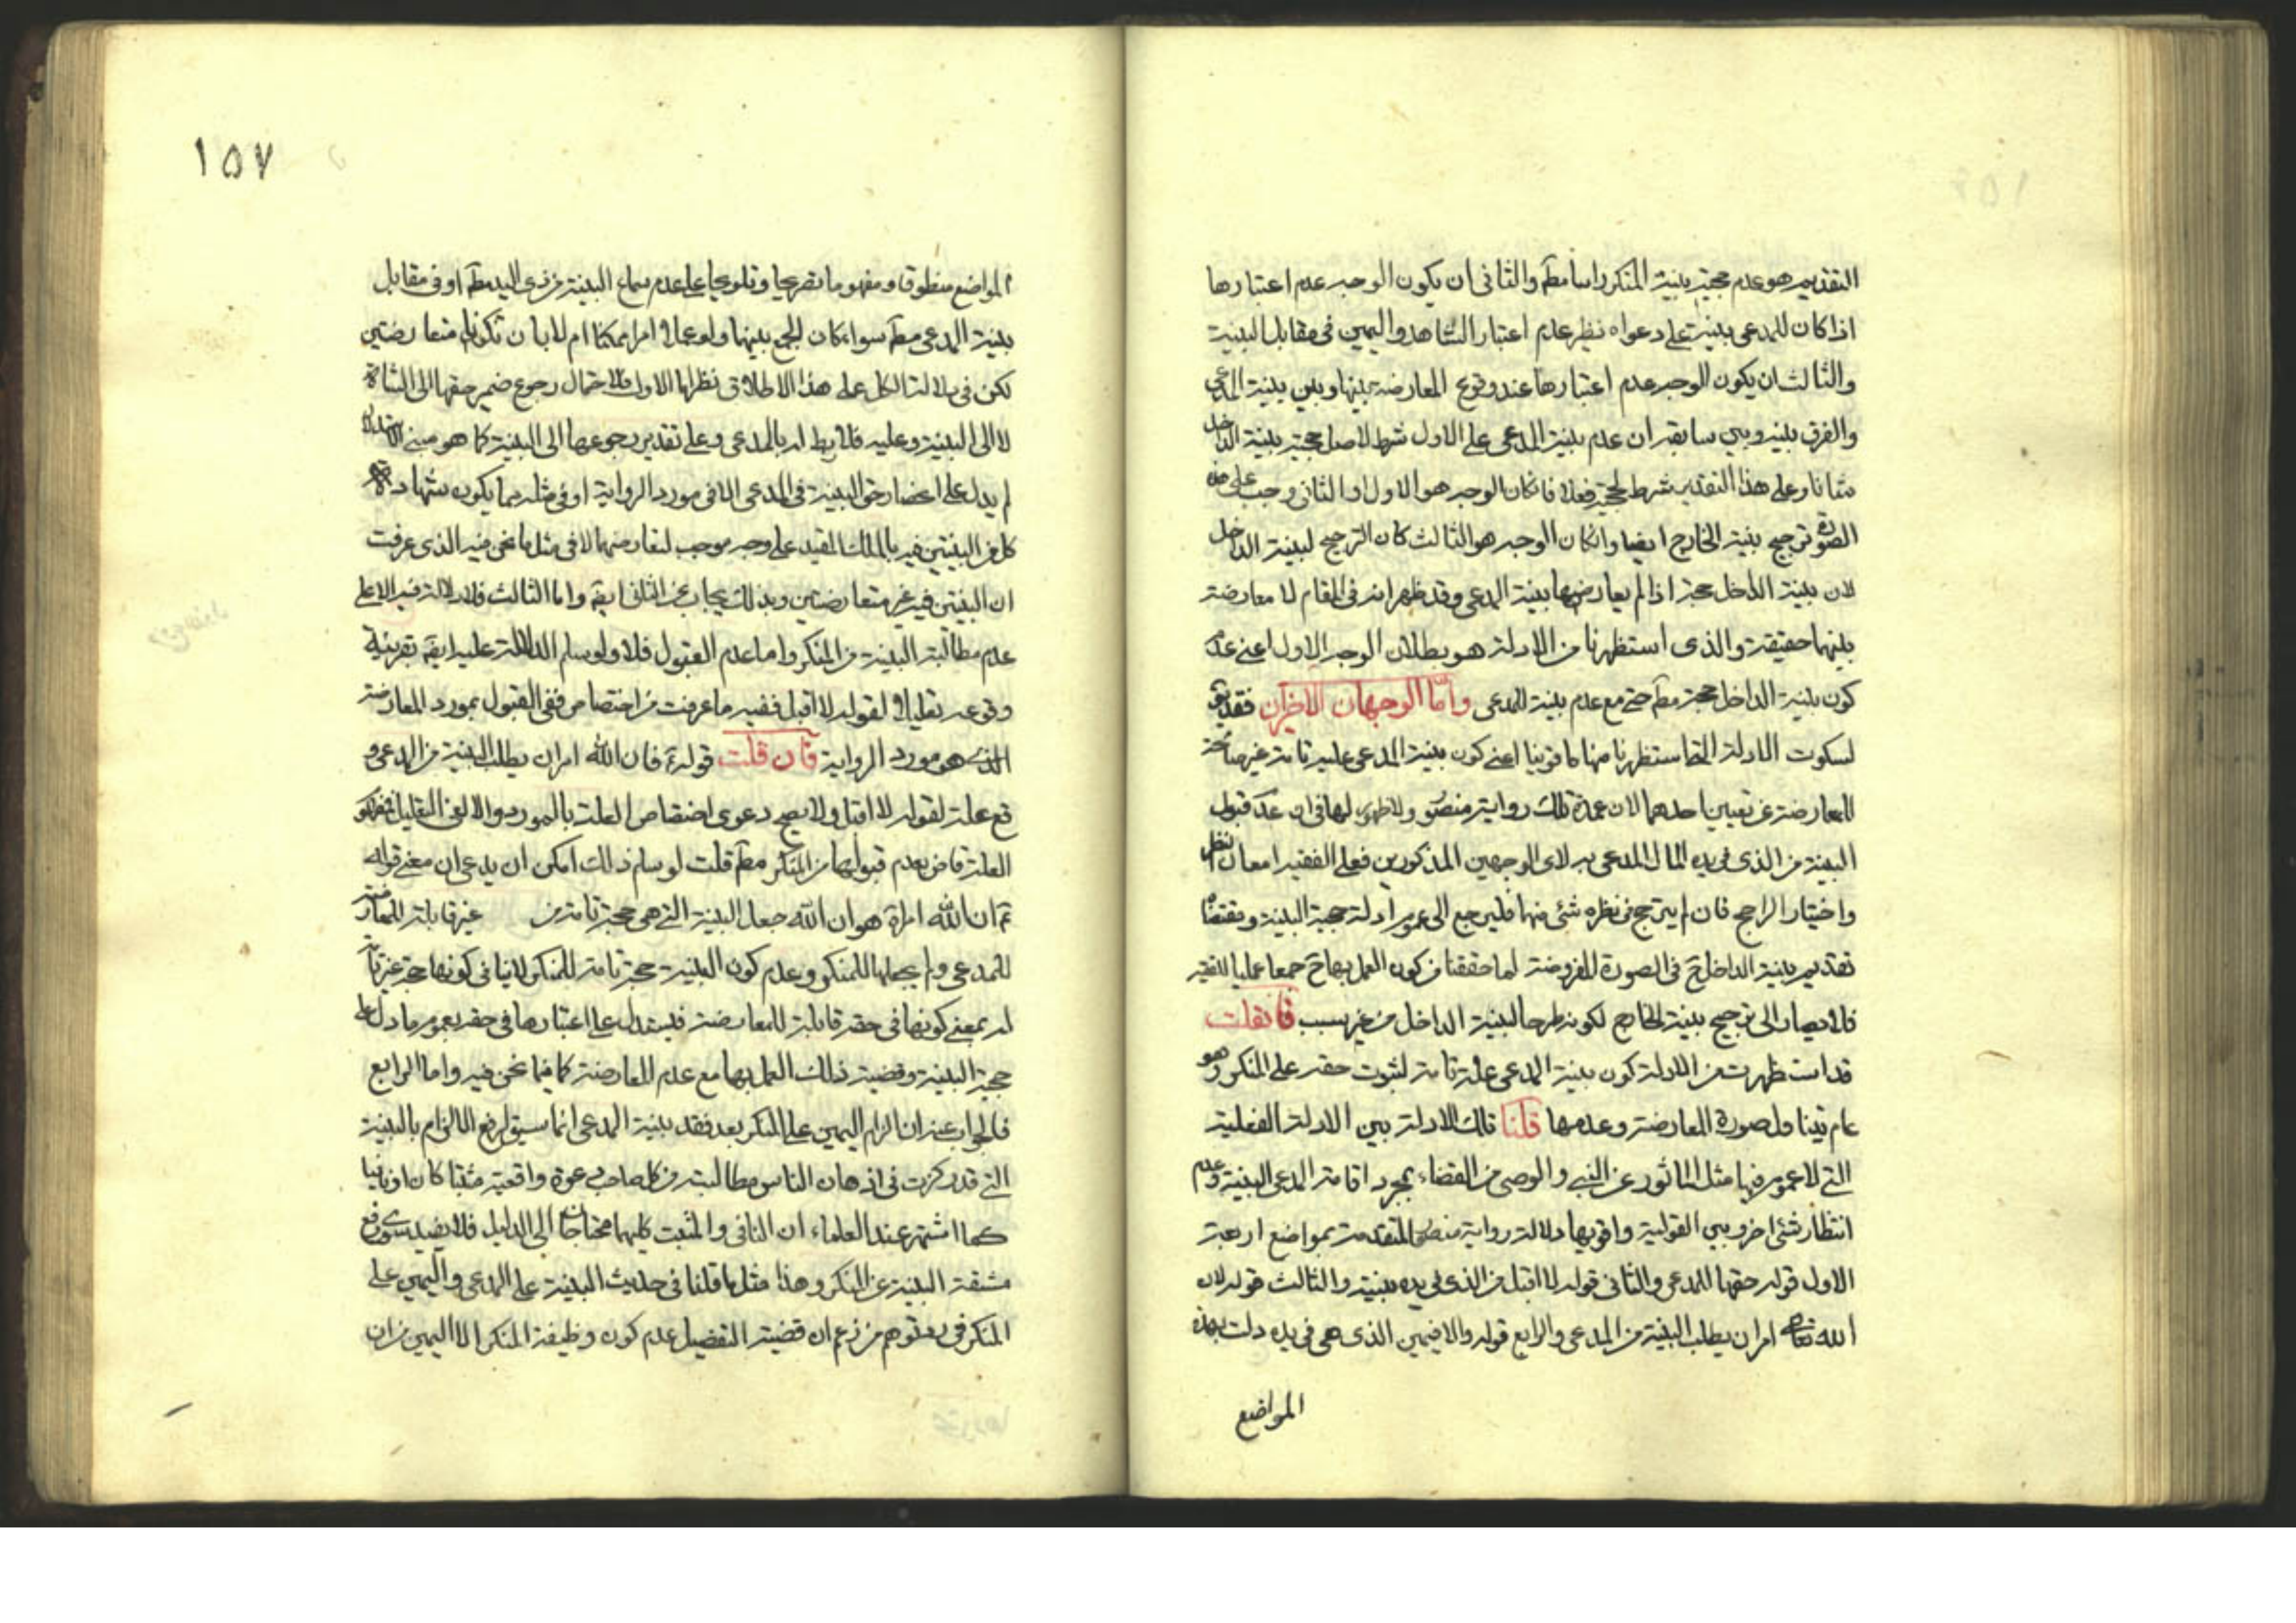 التقديم هو عدم حجية بينة المنكر راسا مطˆ والثانى ان يكون الوجه عدم اعتبارها
اذا كان للمدعى بينة على دعواه نظير عدم اعتبار الشاهد واليمين فى مقابل البينة
والثالث ان يكون الوجه عدم اعتبارها عند وقوع المعارضة بينها وبين بينة المدعى
والفرق بينه وبين سابقه ان عدم بينة المدعى على الاول شرط لاصل حجية بينة الداخل
شانا وعلى هذا التقدير شرط لحجية فعلا فان كان الوجه هو الاول او الثانى وجب على هذه
الصورة ترجيح بينة الخارج ايضا وان كان الوجه هو الثالث كان الترجيح لبينة الداخل
لان بينة الداخل حجة اذا لم يعارضها بينة المدعى وقد ظهر انه فى المقام لا معارضة
بينهما حقيقة والذى استظهرنا من الادلة هو بطلان الوجه الاول اعنى عدم
كون بينة الداخل حجة مطˆ حتى مع عدم بينة للمدعى واما الوجهان الاخيران فقد يقˆ
لسكوت الادلة التى استظهرنا منها ما قوينا اعنى كون بينة المدعى علية تامة غير صالحة
للمعارضة عن تعيين احدهما لان عمدة تلك رواية منصور ولا ظهور لها فى ان عدم قبول
البينة من الذى فى يده المال المدعى به لاى الوجهين المذكورين فعلى الفقيه امعان النظر
واختيار الراجح فان لم يترجح فى نظره شئ منها فليرجع الى عموم ادلة حجية البينة ومقتضاه
تقديم بينة الداخل حˆ فى الصورة المفروضة لما حققنا من كون العمل بها حˆ جمعا عمليا للفقيه
فلا يصار الى ترجيح بينة الخارج لكونه طرحا لبينة الداخل من غير سبب فان قلت
قد استظهرت من الادلة كون بينة المدعى علة تامة لثبوت حقه على المنكر وهو
عام يتناول صورة المعارضة وعدمها قلنا تلك الادلة بين الادلة الفعلية
التى لا عموم فيها مثل الماثور عن النبى والوصى من القضاء بمجرد اقامة المدعى البينة وعدم
انتظار شئ اخر وبين القولية واقويها دلالة رواية منصور المتقدمة بمواضع اربعة
الاول قوله حقها للمدعى والثانى قوله لا اقبل من الذى فى يده بينة والثالث قوله لان
الله تعالى امر ان يطلب البينة من المدعى والرابع قوله والا فيمين الذى هى فى يده دلت بهذه
المواضع
١٥٧
المواضع منطوقا ومفهوما تصريحا وتلويحا على عدم سماع البينة من ذى اليد مطˆ او فى مقابل
بينة المدعى مطˆ سواء كان الجمع بينها ولو عملا امرا ممكنا ام لا بان تكونا متعارضتين
لكن فى دلالة الكل على هذا الاطلاق نظر اما الاول فلاحتمال رجوع ضمير حقها الى الشاة
لا الى البينة وعليه فلا ربط له بالمدعى وعلى تقدير رجوعها الى البينة كما هو مبنى الاستدلال
لم يدل على انحصار حق البينة فى المدعى الا فى مورد الرواية او فى مثله مما يكون شهادة
كل من البينتين فيه بالملك المقيد على وجه موجب لتعارضهما لا فى مثل ما نحن فيه الذى عرفت
ان البينتين فيه غير متعارضتين وبذلك يجاب عن الثانى ايضˆ واما الثالث فلا دلالة فيه الا على
عدم مطالبة البينة من المنكر واما عدم القبول فلا ولو سلم الدلالة عليه ايضˆ بقرينة
وقوعه تعليلا لقوله لا اقبل ففيه ما عرفت من اختصاص نفى القبول بمورد المعارضة
الذى هو مورد الرواية فان قلت قولهˆ فان الله امر ان يطلب البينة من المدعى
وقع علة لقوله لا اقبل ولا يصح دعوى اختصاص العلة بالمورد والا لغى التعليل
العلة قاض بعدم قبولها من المنكر مطˆ قلت لو سلم ذلك امكن ان يدعى ان معنى قوله
ان الله امرˆ هو ان الله جعل البينة التى هى حجة تامة من غير قابلة للمعارضة
للمدعى ولم يجعلها للمنكر وعدم كون البينة حجة تامة للمنكر لا ينافى كونها حجة غير تامة
له بمعنى كونها فى حقه قابلة للمعارضة فيستدل على اعتبارها فى حقه بعموم ما دل على
حجية البينة وقضية ذلك العمل بها مع عدم المعارضة كما فيما نحن فيه واما الرابع
فالجواب عنه ان الزام اليمين على المنكر بعد فقد بينة المدعى انما سيق لرفع الالزام بالبينة
التى قد ركزت فى اذهان الناس مطالبته من كل صاحب دعوة واقعية مثبتا كان او نافيا
كما اشتهر عند العلماء ان النافى والمثبت كليهما محتاجان الى الدليل فلا يفيد سوى رفع
مشقة البينة عن المنكر وهذا مثل ما قلنا فى حديث البينة على المدعى واليمين على
المنكر فى رد توهم من زعم ان قضية التفصيل عدم كون وظيفة المنكر الا اليمين من ان